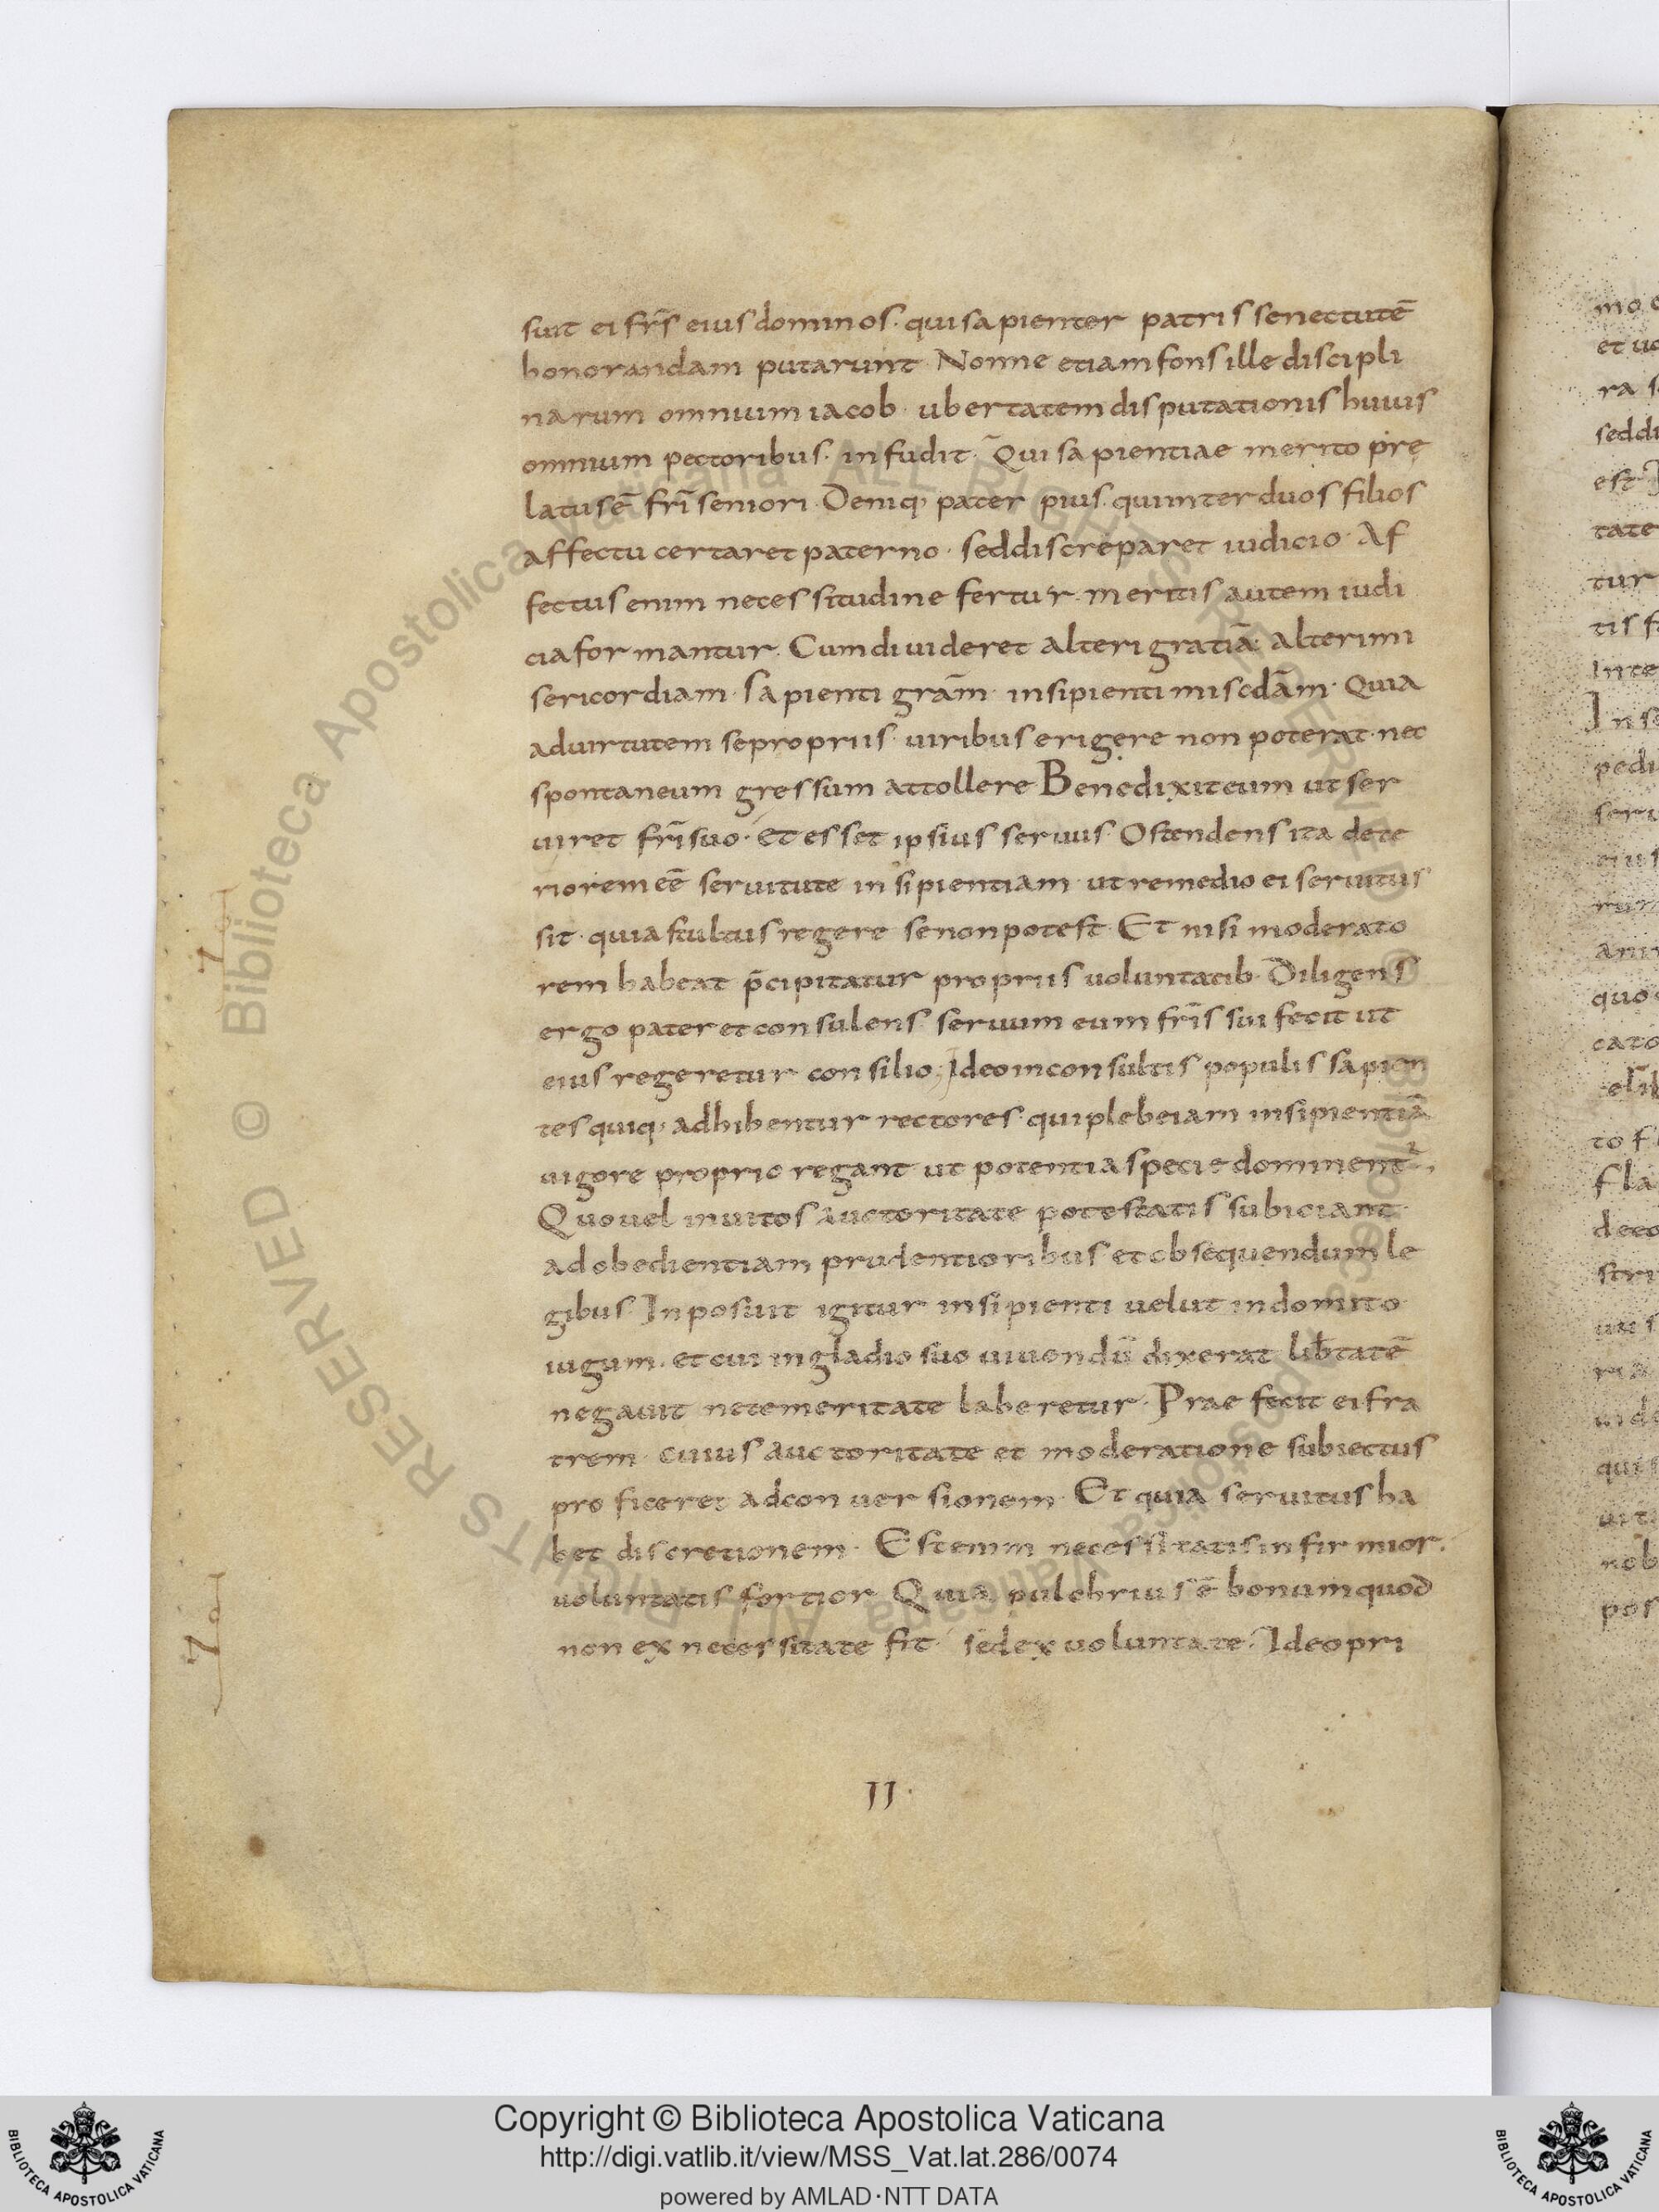 suit ei fr̄s eius dominos. qui sapienter patris senectutē
honorandam putarunt. Nonne etiam fons ille discipli
narum omnium iacob. ubertatem disputationis huius
omnium pectoribus. infudit. Qui sapientiae merito prę
latus ē fr̄i seniori. Deniq; pater pius. qui inter duos filios
affectu certaret paterno. sed discreparet iudicio. Af
fectus enim necessitudine fertur. meritis autem iudi
cia formantur. Cum diuideret alteri gratiā. alteri mi
sericordiam. sapienti grām. insipienti miscdām. Quia
ad uirtutem se propriis uiribus erigere non poterat. nec
spontaneum gressum attollere Benedixit eum ut ser
uiret fr̄i suo. Et esset ipsius seruus. Ostendens ita dete
riorem eē seruitute insipientiam. ut remedio ei seruitus
sit. quia stultus regere se non potest. Et nisi moderato
rem habeat p̄cipitatur propriis uoluntatib. Diligens
ergo pater et consulens seruum eum fr̄is sui fecit ut
eius regeretur consilio; Ideo inconsultis populis sapien
tes quiq; adhibentur rectores. qui plebeiam insipientiā
uigore proprio regant ut potentia specie dominent²,
Quo uel inuitos auctoritate potestatis subiciant
ad obedientiam prudentioribus et obsequendum le
gibus. Inposuit igitur insipienti uelut indomito
iugum. et cui in gladio suo uiuendū dixerat lib̄tatē
negauit ne temeritate laberetur. Prae fecit ei fra
trem. cuius auctoritate et moderatione subiectus
proficeret ad conuersionem. Et quia seruitus ha
bet discretionem. Est enim necessitatis infirmior.
uoluntatis fortior. Quia pulchrius ē bonum quod
non ex necessitate fit. sed ex uoluntate. Ideo pri
II.
Copyright © Biblioteca Apostolica Vaticana
http://digi.vatlib.it/view/MSS_Vat.lat.286/0074
powered by AMLAD·NTT DATA
BIBLIOTECA APOSTOLICA VATICANA
BIBLIOTECA APOSTOLICA VATICANA